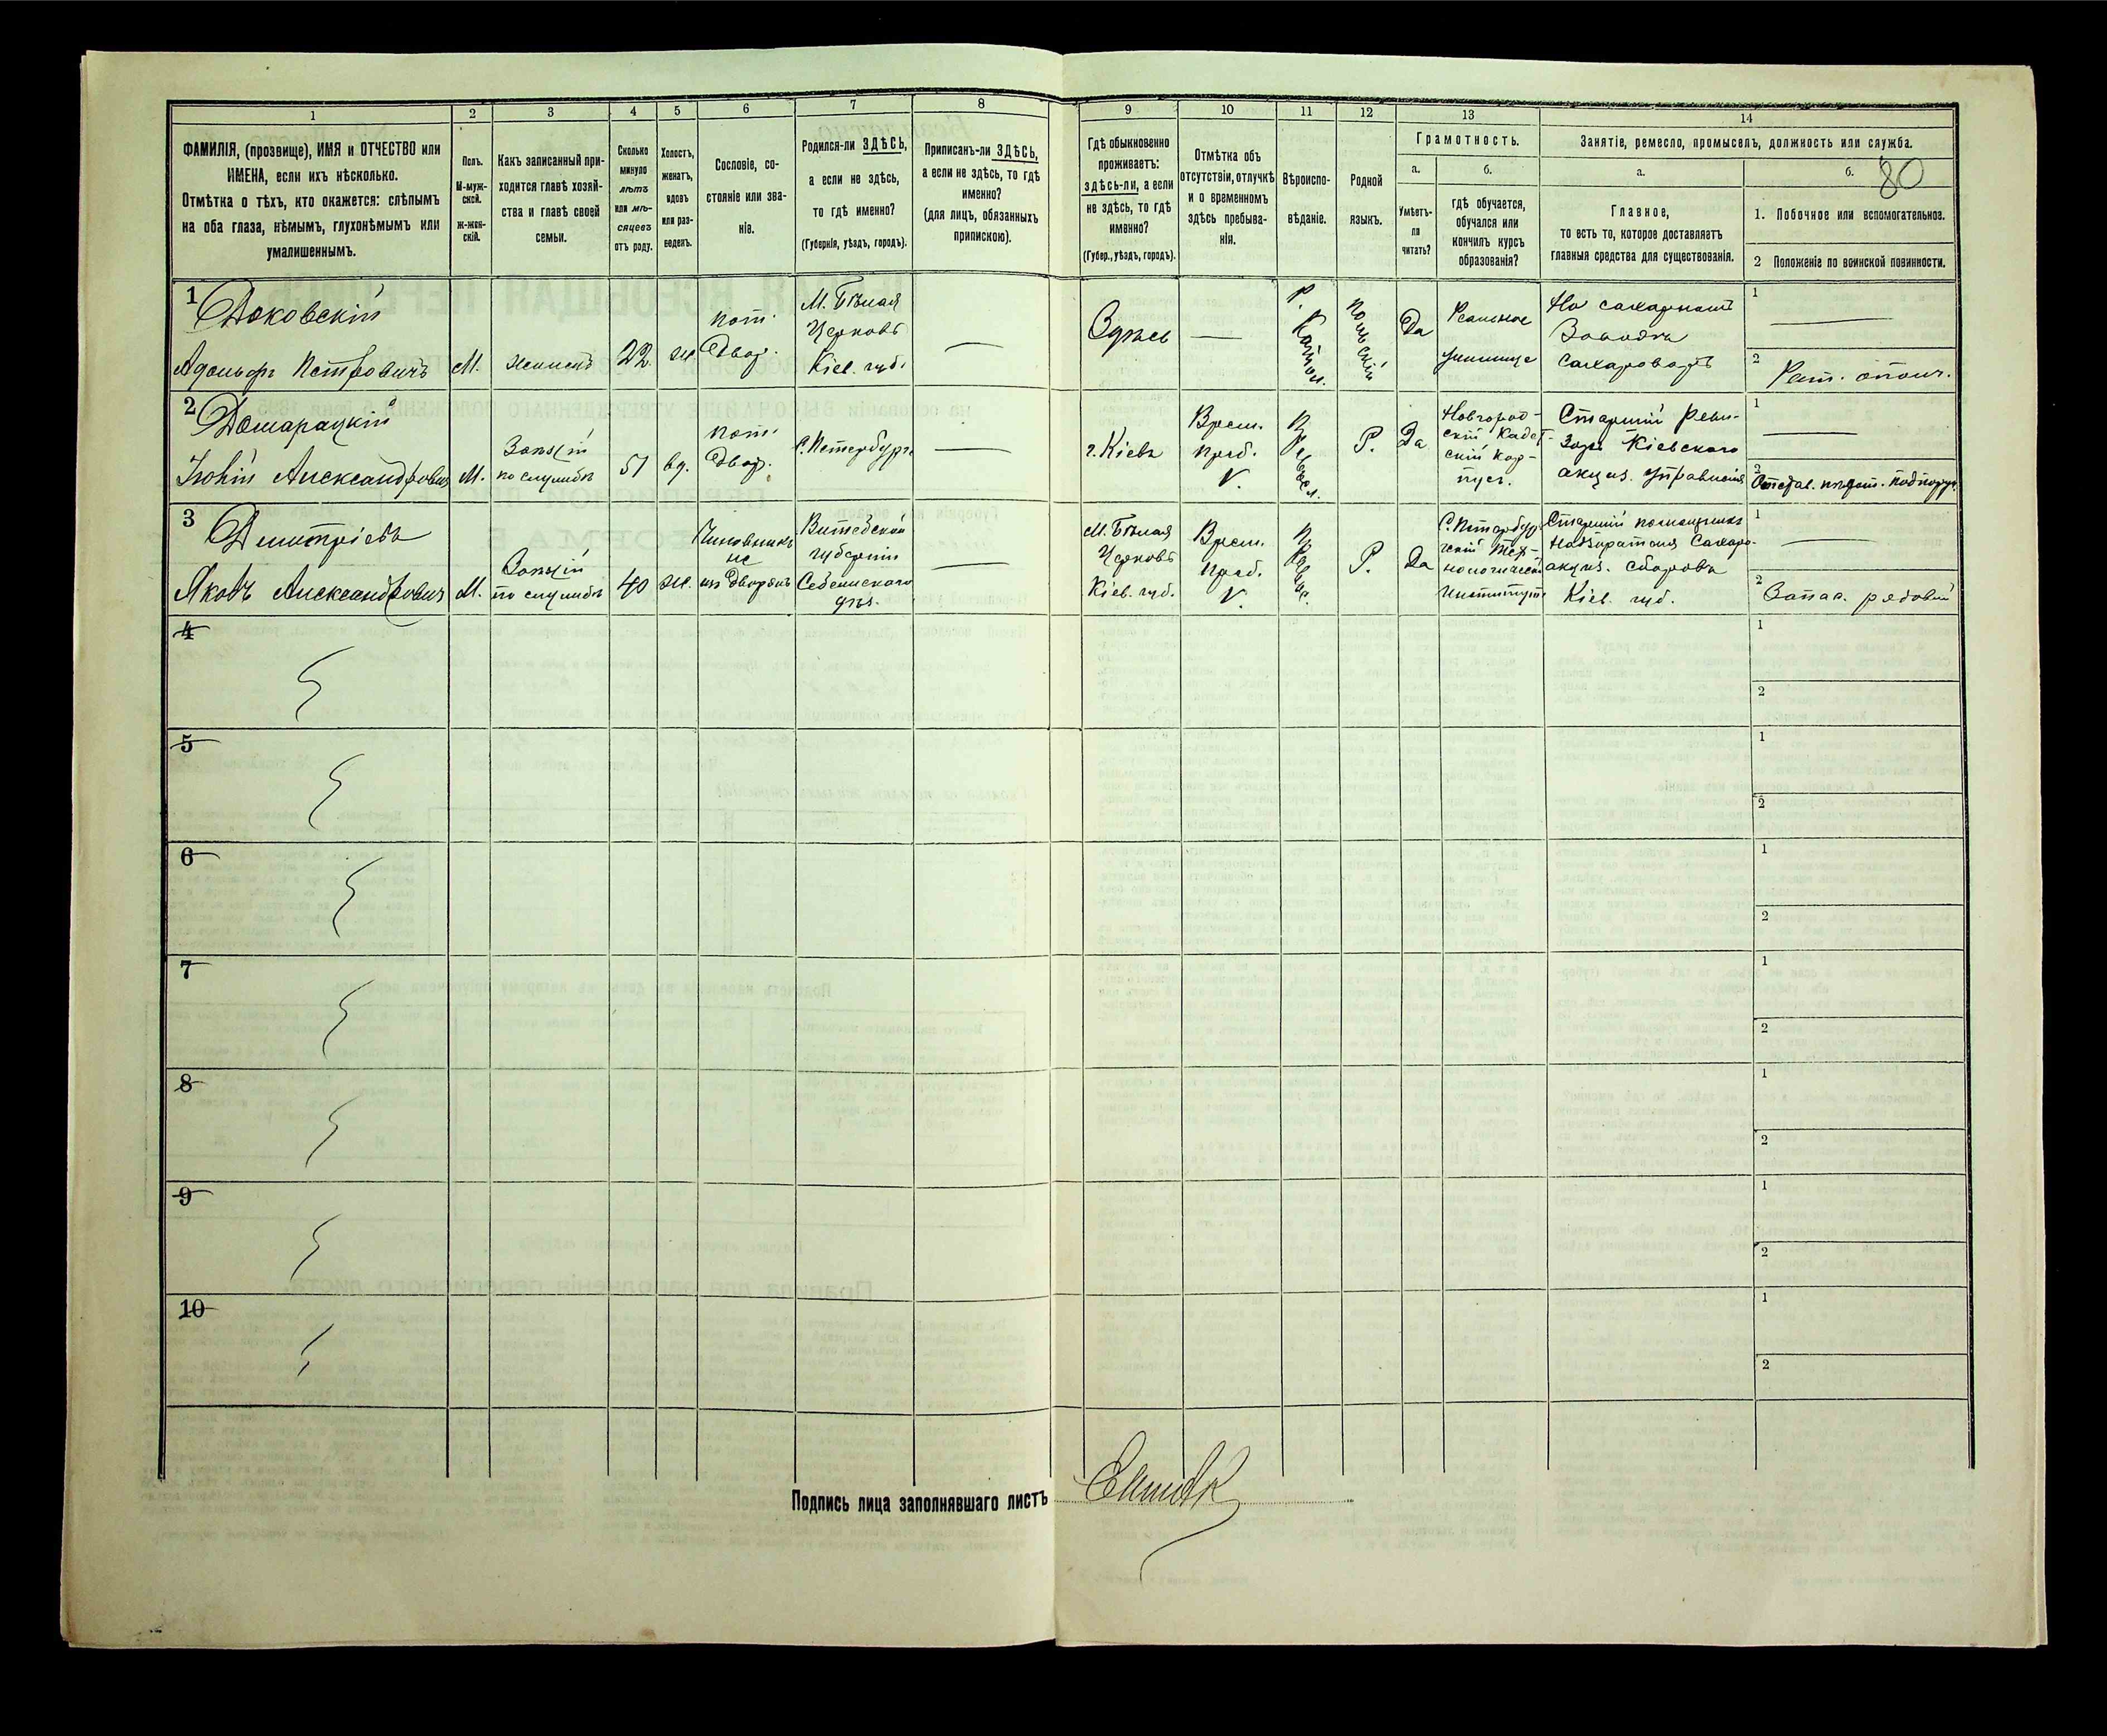 1
2
3
4
5
6
7
8
9
10
11
12
13
14
ФАМИЛІЯ, (прозвище), ИМЯ и ОТЧЕСТВО или
ИМЕНА, если ихъ нѣсколько.
Отмѣтка о тѣхъ, кто окажется: слѣпымъ
на оба глаза, нѣмымъ, глухонѣмымъ или
умалишеннымъ.
Полъ.
М-муж-
ской.
Ж-жен-
скій.
Какъ записанный при-
ходится главѣ хозяй-
ства и главѣ своей
семьи.
Сколько
минуло
лѣтъ
или мѣ-
сяцевъ
отъ роду.
Холостъ,
женатъ,
вдовъ
или раз-
веденъ.
Сословіе, со-
стояніе или зва-
ніе.
Родился-ли ЗДѢСЬ,
а если не здѣсь,
то гдѣ именно?
(Губернія, уѣздъ, городъ).
Приписанъ-ли ЗДѢСЬ,
а если не здѣсь, то гдѣ
именно?
(для лицъ, обязанныхъ
припискою).
Гдѣ обыкновенно
проживаетъ:
здѣсь-ли, а если
не здѣсь, то гдѣ
именно?
(Губер., уѣздъ, городъ).
Отмѣтка объ
отсутствіи, отлучкѣ
и о временномъ
здѣсь пребыва-
нія.
Вѣроиспо-
вѣданіе.
Родной
языкъ.
Грамотность.
а.
Умѣетъ-
ли
читать?
б.
гдѣ обучается,
обучался или
кончилъ курсъ
образованія?
Занятіе, ремесло, промыселъ, должность или служба.
а.
Главное,
то есть то, которое доставляетъ
главныя средства для существованія.
б.
80
1. Побочное или вспомогательное.
2 Положеніе по воинской повинности.
1
Адольфъ Петровичъ
М.
22
пот.
Двор.
М. Бѣлая
Церковь
Кіев. губ.
—
Здѣсь
—
Р. Катол.
Польскій
Да
Реальное
училище
На сахарномъ
Заводѣ
сахароваръ
1
—
2
Рат. ополч.
2
Александровичъ
М.
по службѣ
51
вд.
пот.
Двор.
С. Петербургъ
—
г. Кіевъ
Врем.
преб.
V.
Р.
Да
Новгород-
скій Кадет-
скій кор-
пусъ.
Старшій Реви-
зоръ Кіевскаго
акциз. управленія
1
—
2
Отстав.
3
Дмитріевъ
Яковъ Александровичъ
М.
по службѣ
40
ж.
Чиновникъ
не
изъ дворянъ
Витебской
губерніи
Себежскаго
уѣз.
—
М. Бѣлая
Церковь
Кіев. губ.
Врем.
преб.
V.
Р.
Да
С. Петербург
скій Тех-
нологическ
институтъ
Старшій помощникъ
Надзирателя Сахаро-
акциз. сборовъ
Кіев. губ.
1
—
2
Запас. рядовой
4
1
2
5
1
2
6
1
2
7
1
2
8
1
2
9
1
2
10
1
2
Подпись лица заполнявшаго листъ